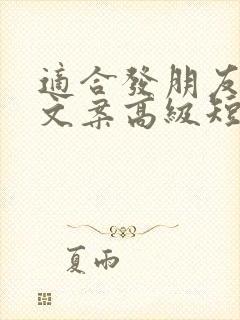 適合發朋友
文案高級短
夏雨